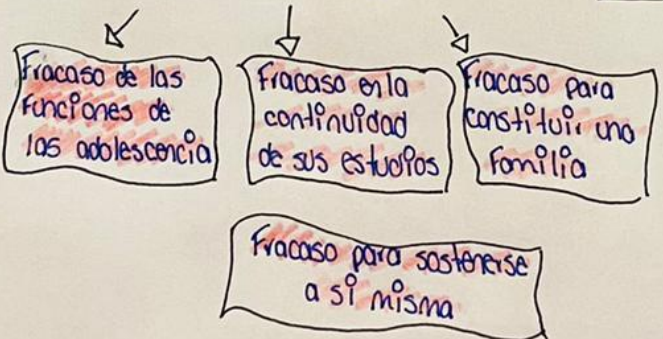 Fracaso de las
funciones de
las adolescencia
Fracaso en la
continuidad
de sus estudios
Fracaso para
constituir una
Familia
Fracaso para sostenerse
a sí misma